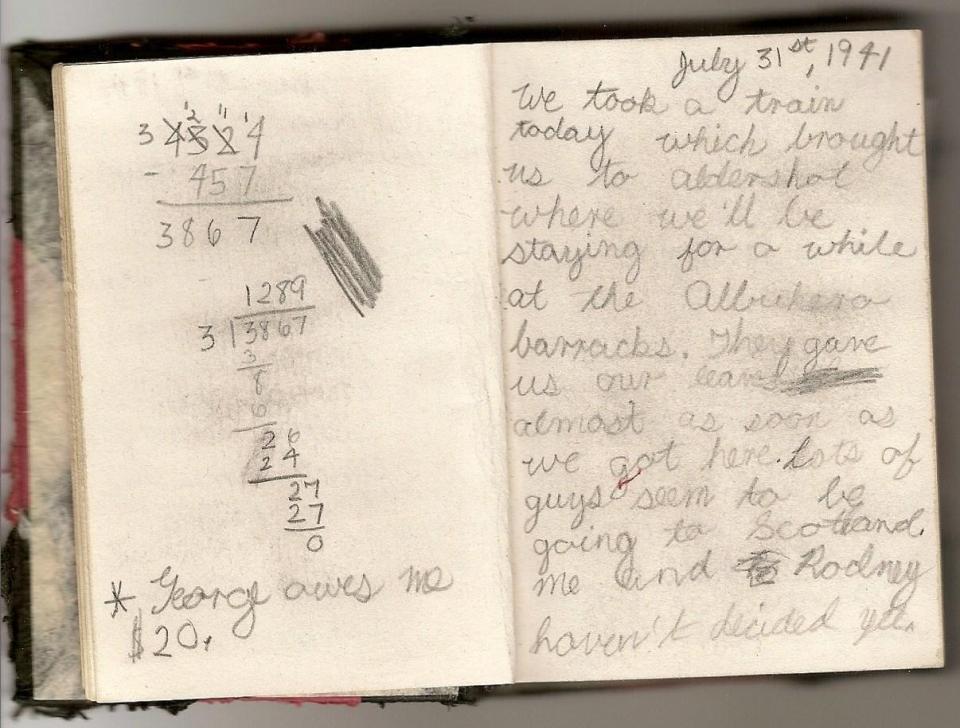 3 12 11 1
4324
- 457
3867
1289
3 3867
3
8
6
26
24
27
27
0
* George owes me
$20.
July 31st, 1941
We took a train
today which brought
us to aldershot
where we'll be
staying for a while
at the Albuhera
barracks. They gave
us our leave
almost as soon as
we got here. Lots of
guys seem to be
going to Scotland.
me and Rodney
haven't decided yet.